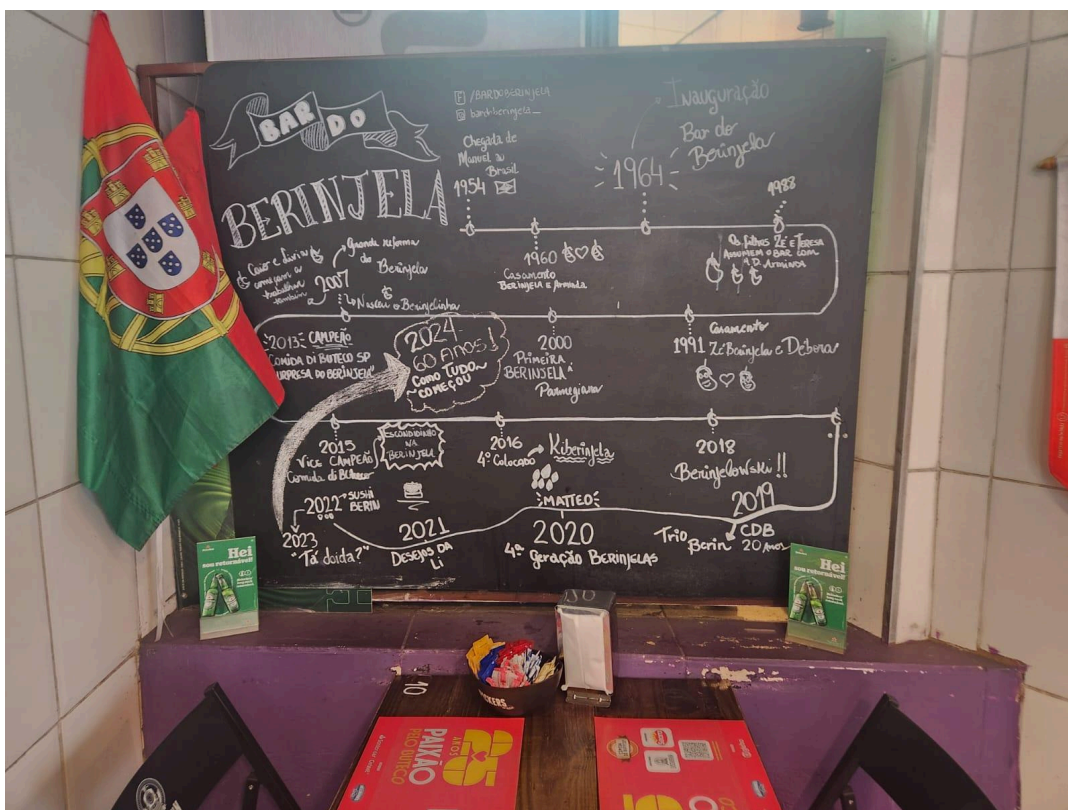 BAR DO
BERINJELA
/BARDOBERINJELA
bardoberinjela_
Chegada de
Manuel ao
Brasil
1954
Inauguração
Bar do
Berinjela
1964
1988
Os filhos Zé e Teresa
ASSUMEM O BAR COM
D. Arminda
1960
Casamento
BERINJELA e Arminda
Caio e Livia
começam a
trabalhar
também
2007
Grande reforma
do Berinjela
Nasceu o Berinjelinha
2013 CAMPEÃO
COMIDA DI BUTECO SP
SURPRESA DO BERINJELA"
2024
60 ANOS!
COMO TUDO
COMEÇOU
2000
PRIMEIRA
BERINJELA
Parmegiana
Casamento
1991 Zé Berinjela e Débora
2015
VICE CAMPEÃO
Comida di Buteco
ESCONDIDINHO
NA
BERINJELA
2016
4º Colocado
Kiberinjela
2018
Berinjelowski!!
2019
CDB
20 Anos
Trio
Berin
MATTEO
2020
4ª geração BERINJELAS
2021
DESEJOS DA
Li
2022
SUSHI
BERIN
2023
"Tá doida?"
Hei
sou retornável!
Hei
sou retornável!
10
25
ANOS
PAIXÃO
PELO BUTECO